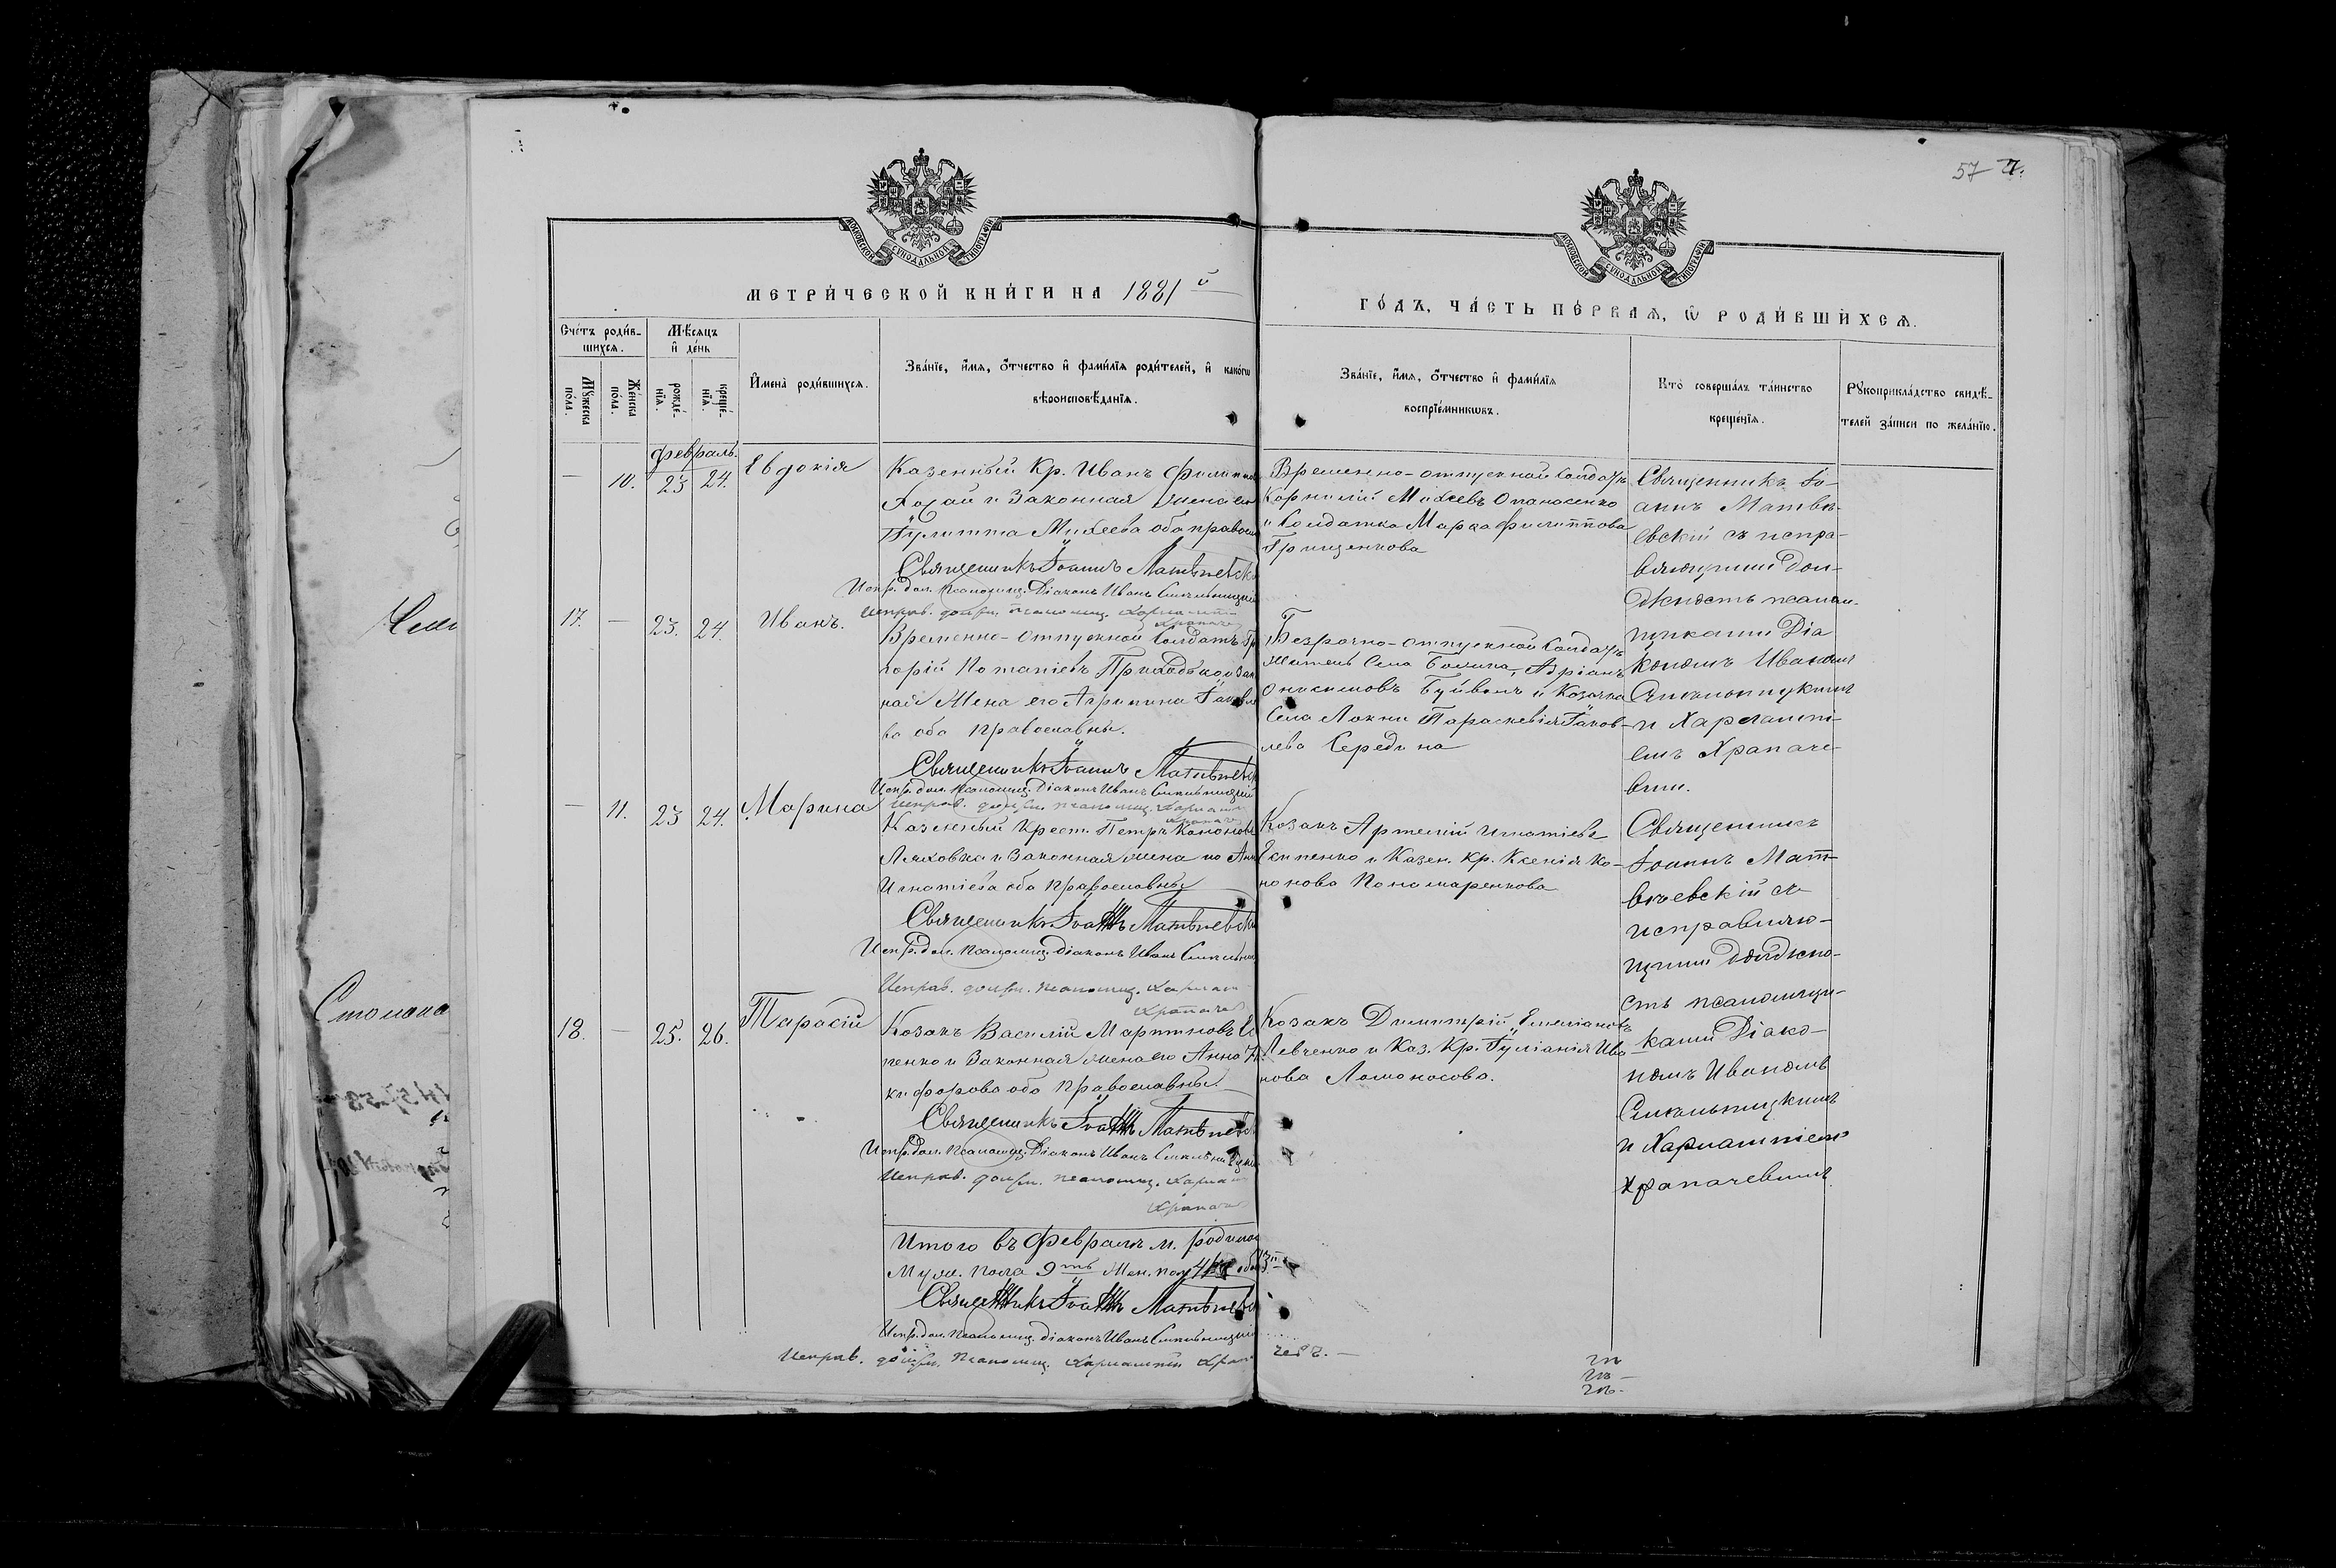 57
7.
МОСКОВСКОЙ СѴНОДАЛЬНОЙ ТИПОГРАФІИ
МОСКОВСКОЙ СѴНОДАЛЬНОЙ ТИПОГРАФІИ
МЕТРИ́ЧЕСКОЙ КНИ́ГИ НА 1881 й
ГО́ДЪ, ЧА́СТЬ ПЕ́РВАѦ, Ѽ РОДИ́ВШИ́ХСѦ.
Сче́тъ роди́в-
шихсѧ.
Мꙋ́жеска по́ла.
Же́нска по́ла.
Мѣ́сѧцъ
и҆ де́нь
рожде́-
нїѧ.
креще́-
нїѧ.
И҆мена̀ роди́вшихсѧ.
Зва́нїе, и҆́мѧ, ѻ҆́тчество и҆ фами́лїѧ роди́телей, и҆ како́гѡ
вѣроисповѣ́данїѧ.
Зва́нїе, и҆́мѧ, ѻ҆́тчество и҆ фами́лїѧ
воспрїе́мникѡвъ.
Кто̀ соверша́лъ та́инство
креще́нїѧ.
Рꙋкоприкла́дство свидѣ́-
телей за́писи по жела́нїю.
Февраль.
— 10. 23 24. Евдокія
Казенный Кр. Иванъ Филипп
и Законная жена его
Михеева оба правос
Священникъ Іоаннъ Матвѣевск
Испр. дол. псаломщ. Діаконъ Иванъ
Исправ. должн. псаломщ. Харламп
Храпаче
Временно-отпускной солдатъ
Корнилій Михеевъ Опанасенко
и Солдатка Марѳа Филиппова
Грищенкова
Священникъ Іо-
аннъ Матвѣ-
евскій съ испра-
вляющими дол-
жность псалом-
щиками Діа
кономъ Иваномъ
и Харлампі-
емъ Храпаче-
вым.
17. — 23. 24. Иванъ.
Временно-отпускной Солдатъ Гр
горій Потапіевъ Приходько и Зак
ная Жена его Агрипина Іаковле
ва оба православны.
Священникъ Іоаннъ Матвѣевск
Испр. дол. псаломщ. Діаконъ Иванъ
Исправ. должн. псаломщ. Харламп
Храпаче
Безрочно-отпускной Солдатъ
житель Села Адріанъ
Онисимовъ и Козачка
Села Локни Параскевія Іаков-
лева Середина
— 11. 23 24. Марина
Казенный Крест. Петръ Кононовъ
Ляховка и Законная жена его Анн
Игнатіева оба Православны
Священникъ Іоаннъ Матвѣевск
Испр. дол. псаломщ. Діаконъ Иванъ
Исправ. должн. псаломщ. Харламп
Храпачев
Козакъ Артемій Игнатіевъ
Есипенко и Казен. Кр. Ксенія Ко-
нонова Пономаренкова
Священникъ
Іоаннъ Мат-
вѣевскій съ
исправляю-
щими должно-
сть псаломщи-
ками Діако-
номъ Иваномъ
и Харлампіемъ
Храпачевымъ
18. — 25. 26. Тарасій
Козакъ Василій Мартиновъ Еси
пенко и Законная жена его Анна Ни
кифорова оба Православны
Священникъ Іоаннъ Матвѣевск
Испр. дол. псаломщ. Діаконъ Иванъ
Исправ. должн. псаломщ. Харламп
Храпачев
Козакъ Димитрій Емеліановъ
Левченко и Каз. Кр. Іуліанія Ива
нова Ломоносова.
Итого въ Февралѣ м. родилос
Муж. пола 9ть Жен. пол
Священникъ Іоаннъ Матвѣевск
Испр. дол. псаломщ. Діаконъ Иванъ
Исправ. должн. псаломщ. Харлампій Храпа чевъ. —